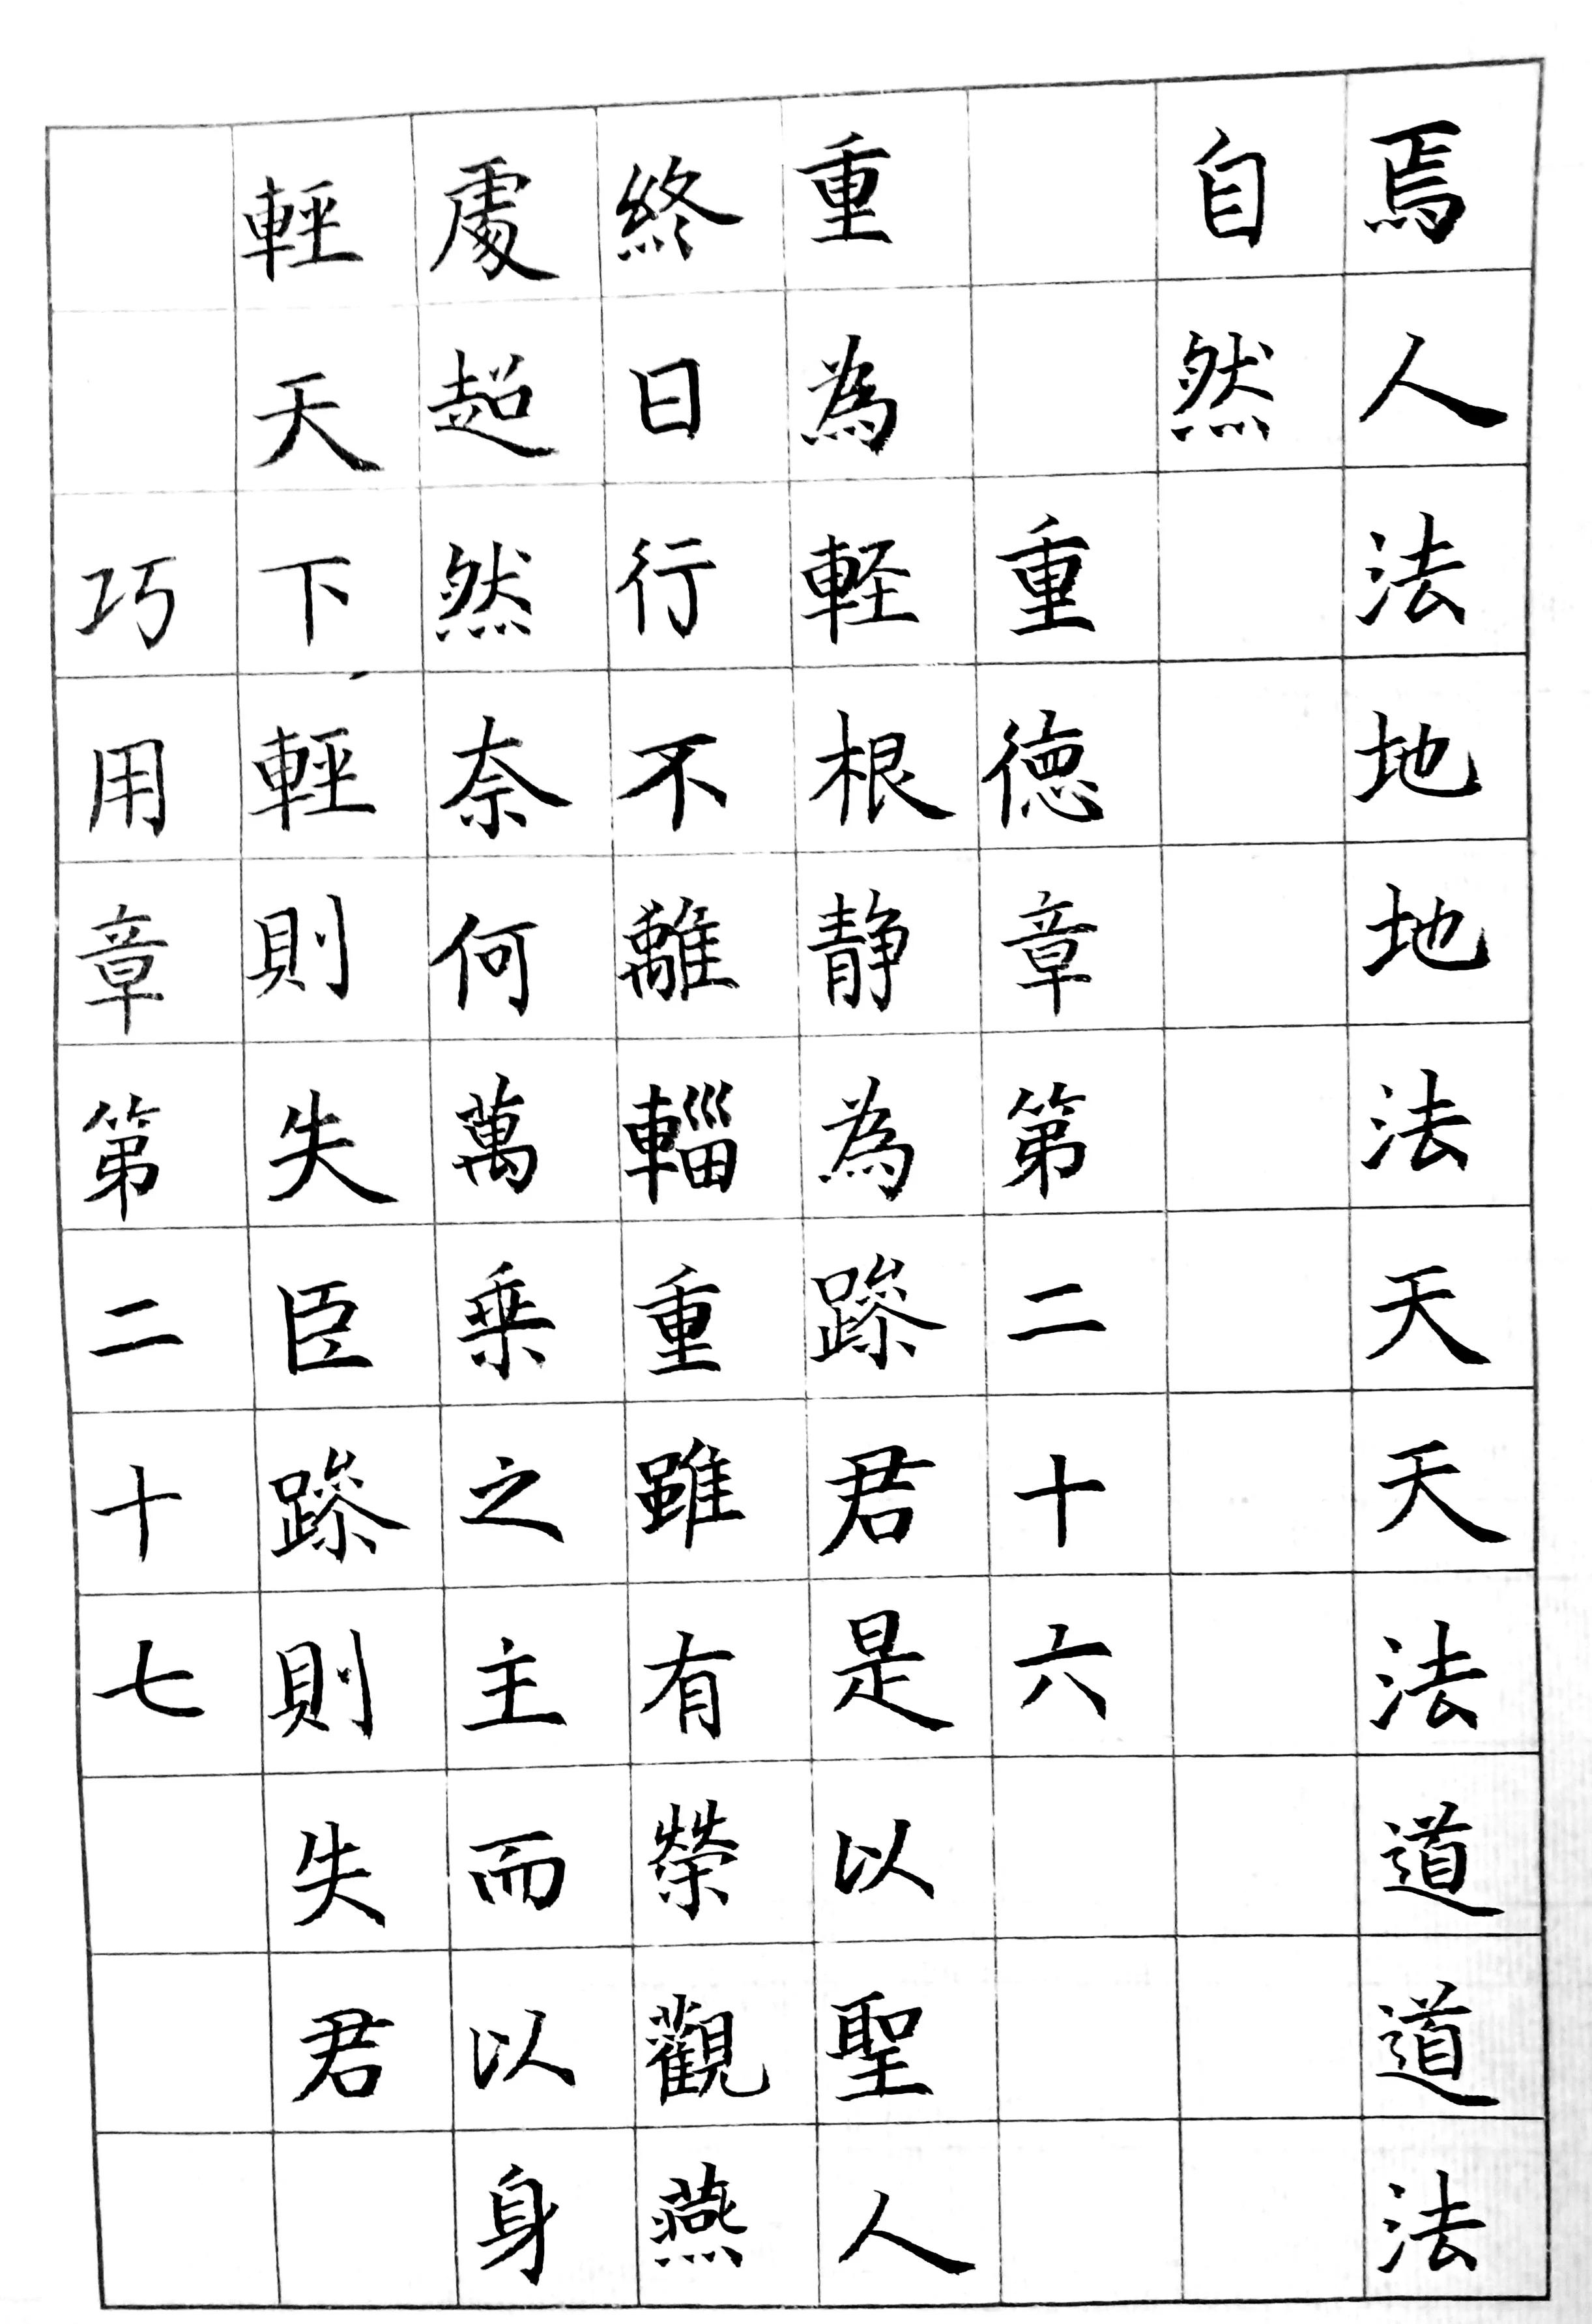 焉人法地地法天天法道道法
自然
重徳章第二十六
重為軽根静為躁君是以聖人
終日行不離輜重雖有榮觀燕
處超然奈何萬乗之主而以身
輕天下輕則失臣躁則失君
巧用章第二十七